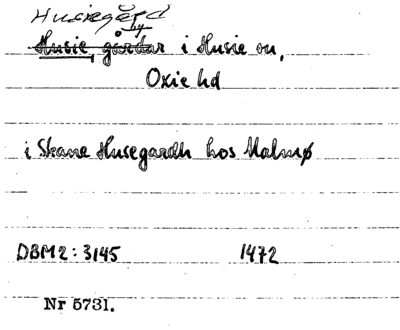 Husiegård
by
Husie, gårdar i Husie sn,
Oxie hd
i Skane Husegardh hos Malmø
DBM2: 3145 1472
Nr 5731.